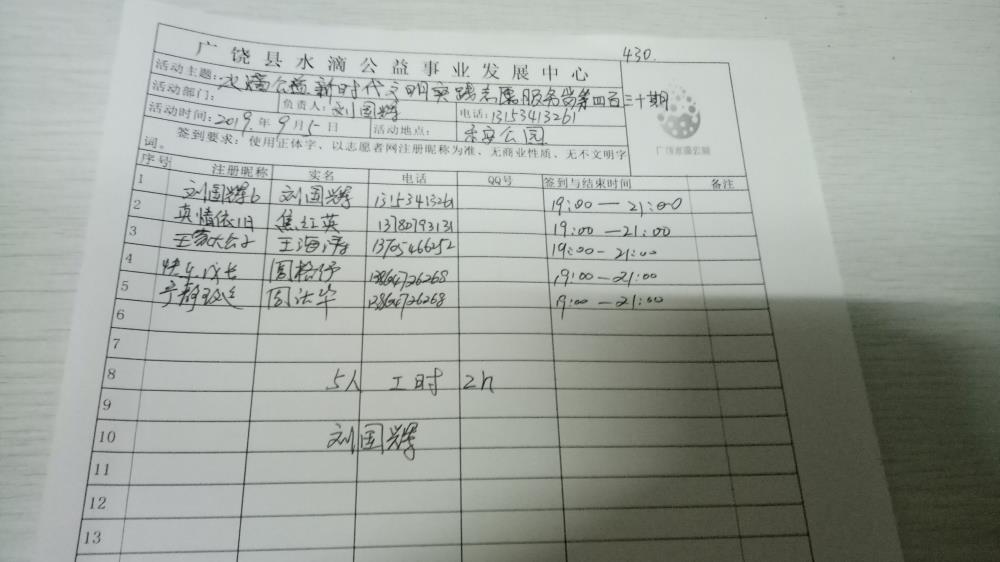 430.
广饶县水滴公益事业发展中心
活动主题: 水滴公益新时代文明实践志愿服务营第四百三十期
活动部门: 负责人: 刘国辉 电话: 13153413261
活动时间: 2019年9月5日 活动地点: 乐安公园
签到要求: 使用正体字、以志愿者网注册昵称为准、无商业性质、无不文明字
词。
广饶水滴公益
序号 注册昵称 实名 电话 QQ号 签到与结束时间 备注
1 刘国辉6 刘国辉 13153413261 19:00—21:00
2 真情依旧 焦红英 13780793131 19:00—21:00
3 王海涛 13705466252 19:00-21:00
4 快乐成长 13864726268 19:00—21:00
5 周法华 13864726268 19:00—21:00
6
7
8 5人 工时 2h
9
10 刘国辉
11
12
13